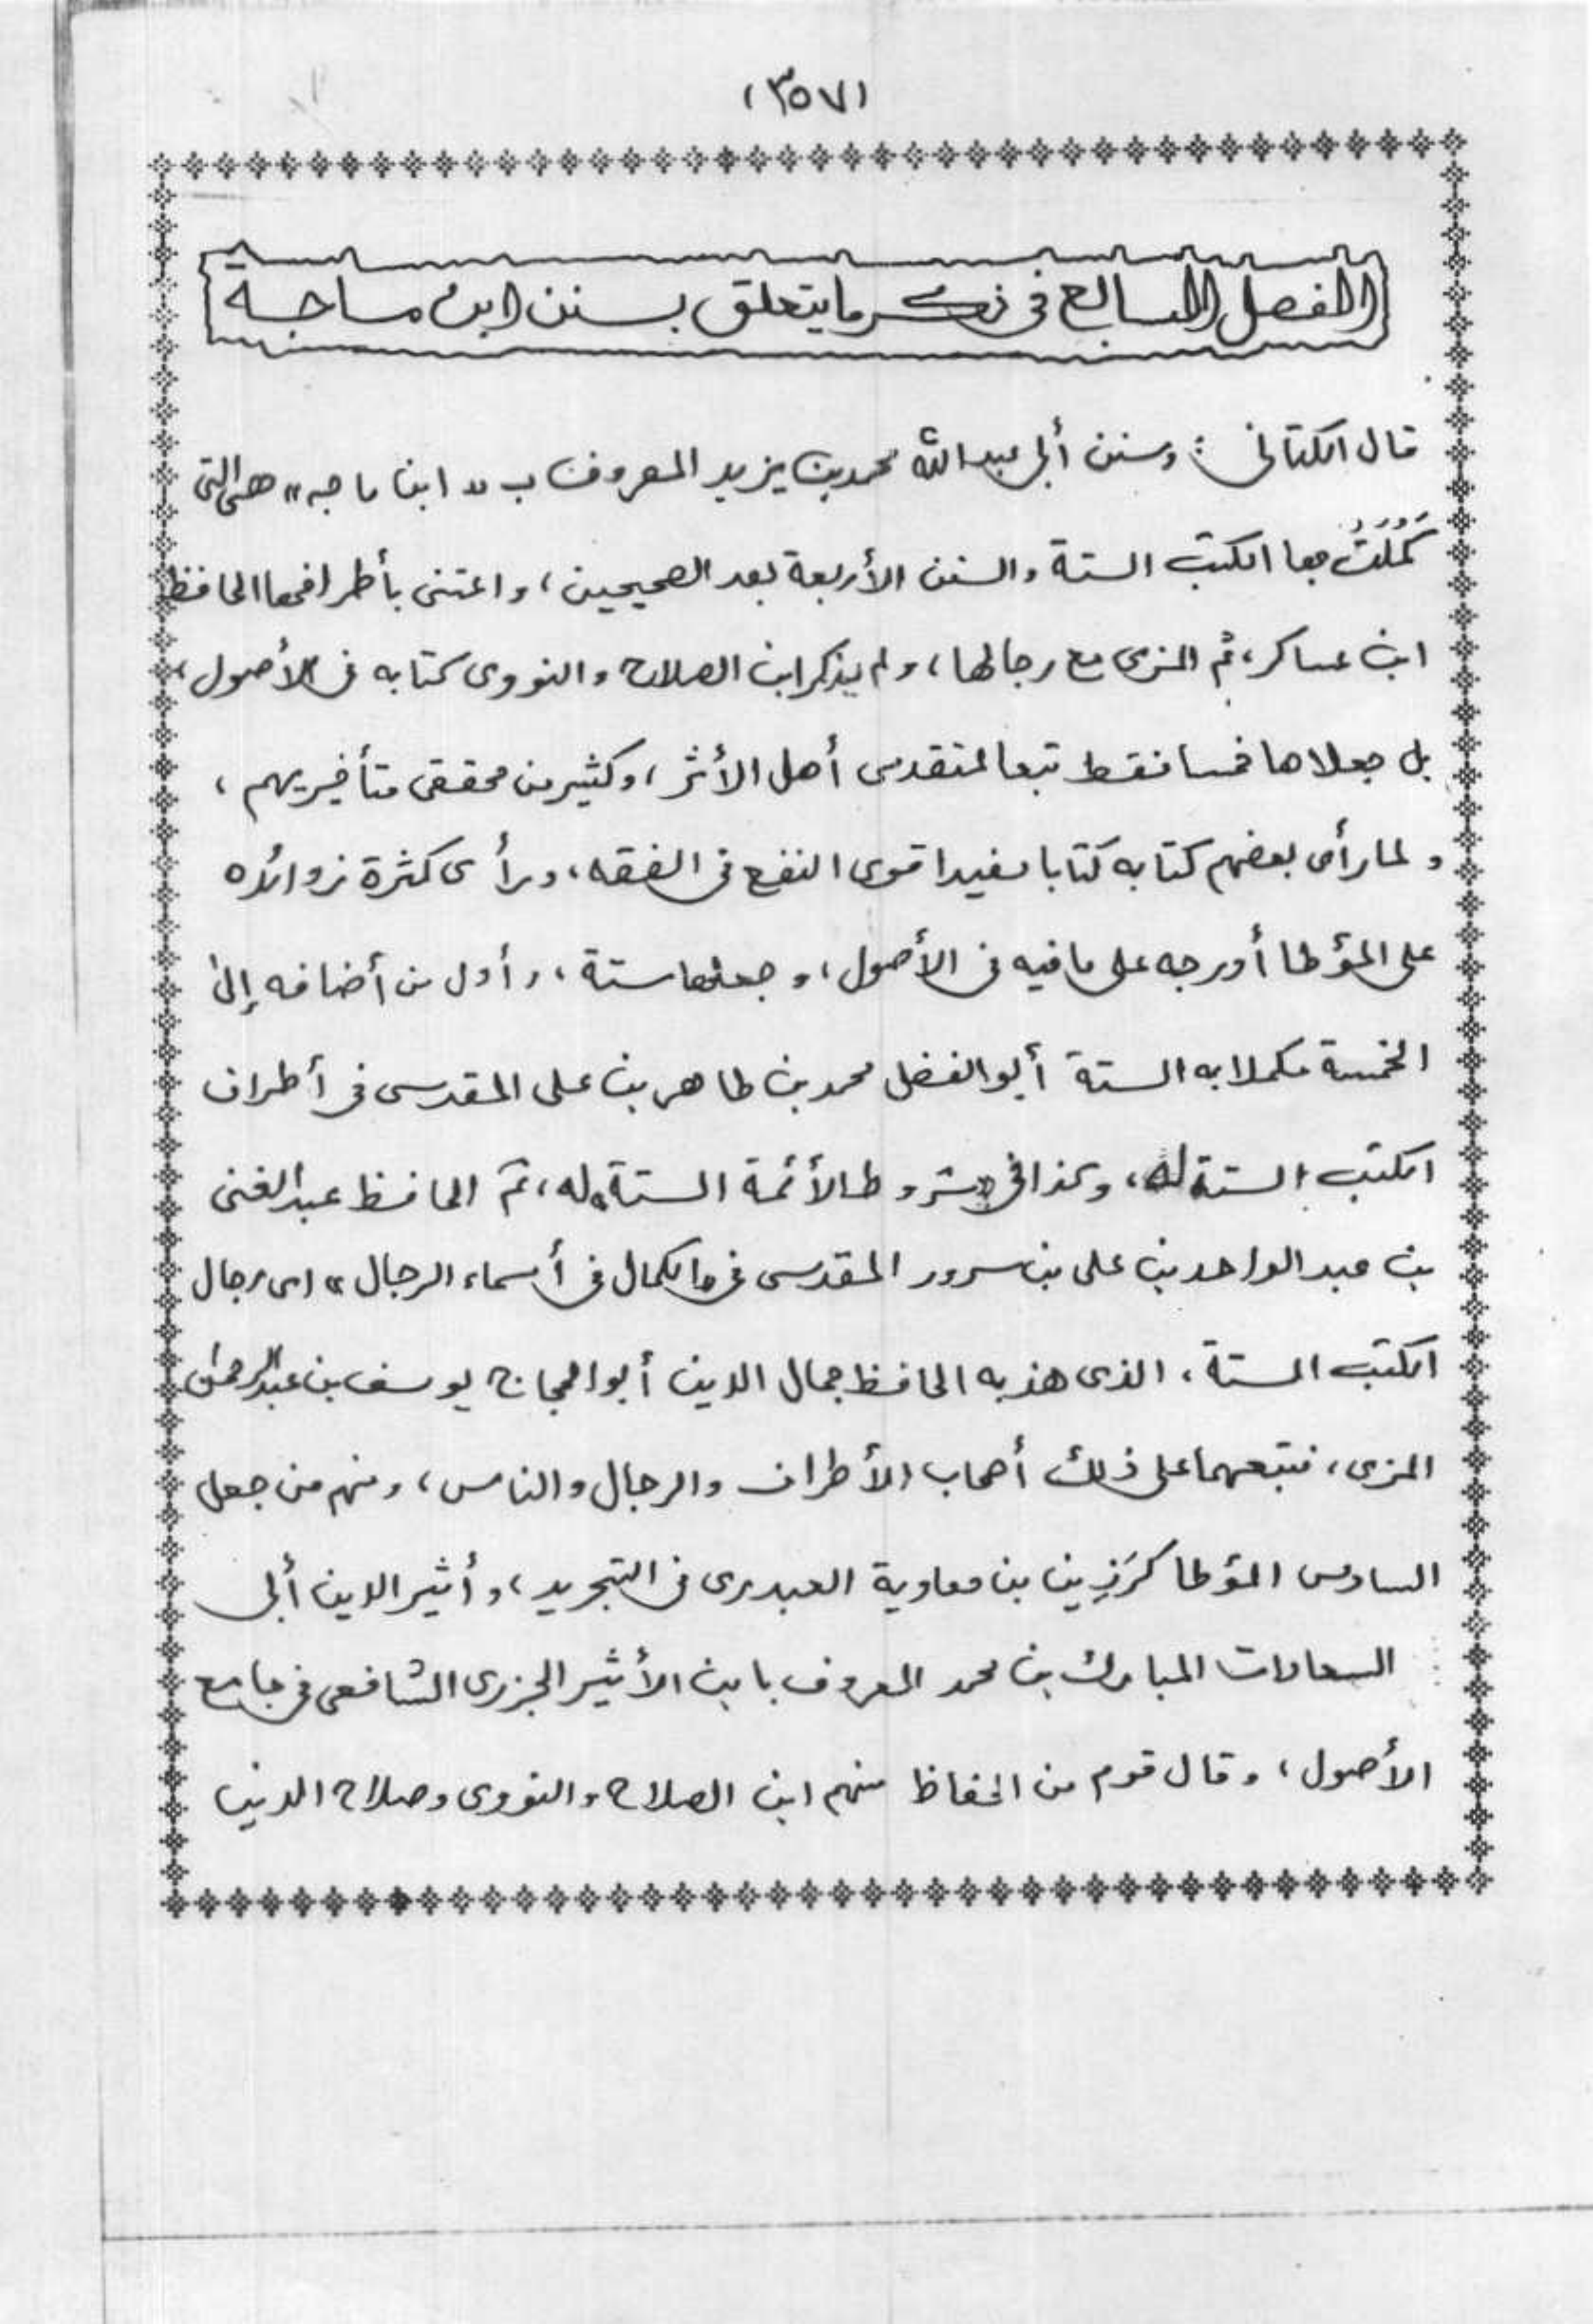 (٣٥٧)
الفصل السابع فى ذكر ما يتعلق بسنن ابن ماجة
قال الكتانى : وسنن أبى عبد الله محمد بن يزيد المعروف ب « ابن ماجه » هى التى
كَمُلَتْ بها الكتب الستة والسنن الأربعة بعد الصحيحين، واعتنى بأطرافها الحافظ
ابن عساكر، ثم المزى مع رجالها، ولم يذكر ابن الصلاح والنووى كتابه فى الأصول،
بل جعلاها خمسا فقط تبعا لمتقدمى أهل الأثر، وكثير من محققى متأخيريهم،
ولما رأى بعضهم كتابه كتابا مفيدا قوى النفع فى الفقه، ورأى كثرة زوائده
على المؤطا أدرجه على ما فيه فى الأصول، وجعلها ستة، وأول من أضافه إلى
الخمسة مكملا به الستة أبو الفضل محمد بن طاهر بن على المقدسى فى أطراف
الكتب الستة له، وكذا فى «شروط الأئمة الستة» له، ثم الحافظ عبد الغنى
بن عبد الواحد بن على بن سرور المقدسى فى «الكمال فى أسماء الرجال» اى رجال
الكتب الستة، الذى هذبه الحافظ جمال الدين أبو الحجاج يوسف بن عبد الرحمن
المزى، فتبعهما على ذلك أصحاب الأطراف والرجال والناس، ومنهم من جعل
السادس المؤطا كَرَزِين بن معاوية العبدرى فى التجريد، وأثير الدين أبى
السعادات المبارك بن محمد المعروف بابن الأثير الجزرى الشافعى فى جامع
الأصول، وقال قوم من الحفاظ منهم ابن الصلاح والنووى وصلاح الدين